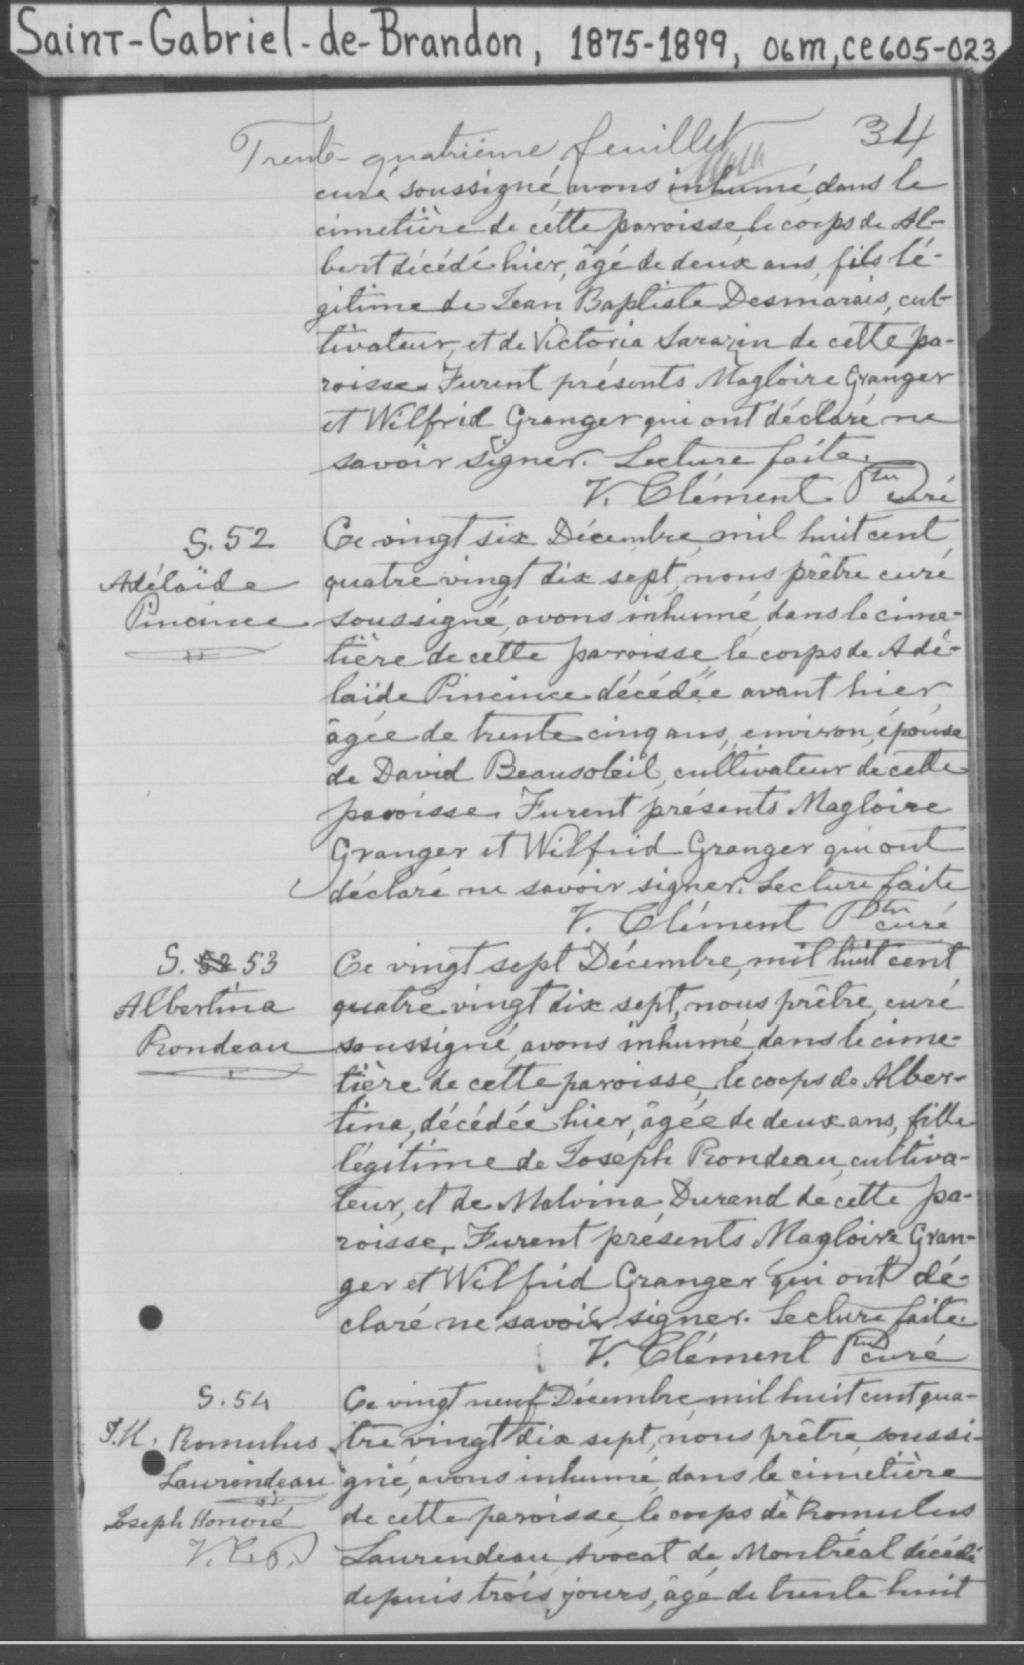 Saint-Gabriel-de-Brandon, 1875-1899, 06m, ce605-023
34
Trente-quatrième feuillet
curé soussigné avons inhumé dans le
cimetière de cette paroisse, le corps de Al-
bert décédé hier, âgé de deux ans, fils lé-
gitime de Jean Baptiste Desmarais, cul-
tivateur, et de Victoria Sarazin de cette pa-
roisse. Furent présents Magloire Granger
et Wilfrid Granger qui ont déclaré ne
savoir signer. Lecture faite.
V. Clément Ptre curé
S. 52
Adélaïde
Pincince
Ce vingt six Décembre mil huit cent
quatre vingt dix sept, nous prêtre curé
soussigné, avons inhumé, dans le cime-
tière de cette paroisse, le corps de Adé-
laïde Pincince décédée avant hier
âgée de trente cinq ans, environ, épouse
de David Beausoleil, cultivateur de cette
paroisse. Furent présents Magloire
Granger et Wilfrid Granger qui ont
déclaré ne savoir signer. Lecture faite
V. Clément Ptre curé
S. 52 53
Albertina
Rondeau
Ce vingt sept Décembre, mil huit cent
quatre vingt dix sept, nous prêtre, curé
soussigné, avons inhumé, dans le cime-
tière de cette paroisse, le corps de Alber-
tina, décédée hier, âgée de deux ans, fille
légitime de Joseph Rondeau, cultiva-
teur, et de Malvina Durand de cette pa-
roisse. Furent présents Magloire Gran-
ger et Wilfrid Granger qui ont dé-
claré ne savoir signer. Lecture faite.
V. Clément Ptre curé
S. 54
J.H. Romulus
Laurendeau
Joseph Honoré
Ce vingt neuf Décembre, mil huit cent qua-
tre vingt dix sept, nous prêtre, soussi-
gné, avons inhumé, dans le cimetière
de cette paroisse, le corps de Romulus
Laurendeau, Avocat de Montréal décédé
depuis trois jours, âgé de trente huit